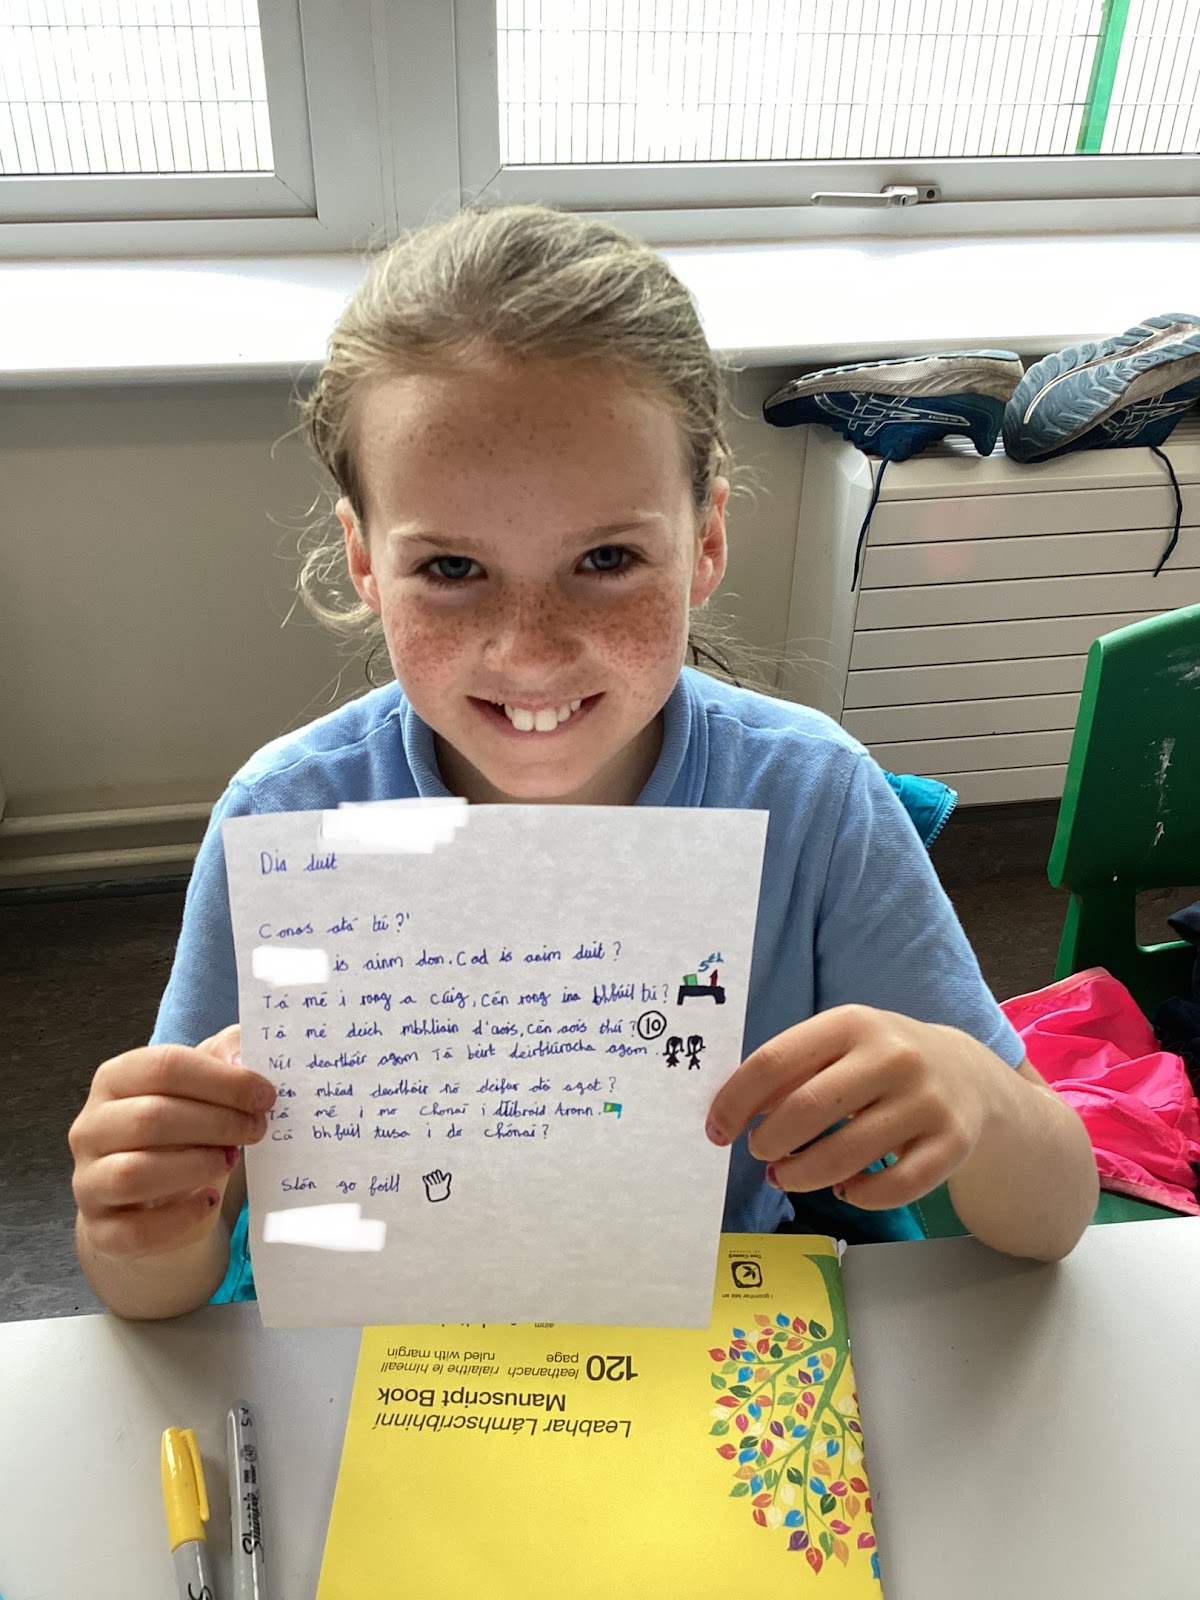 Dia duit
Conas atá tú?'
is ainm dom. Cad is ainm duit?
5th
Tá mé i rang a cúig, Cén rang ina bhfúil tú?
Tá mé deich mbhliain d'aois, Cén aois thú? 10
Níl dearthóir agam Tá beirt deirbhiúracha agam.
Cén mhéad dearthóir nó deifiur atá agat?
Tá mé i mo chonaí i dTibraid Arann.
Cá bhfuil tusa i do chónaí?
Slán go foill
i gcomhar leis an
Tree Council
ainm
120 page
leathanach rialaithe le himeall
ruled with margin
Leabhar Lámhscríbhinní
Manuscript Book
Sharpie
S
asics